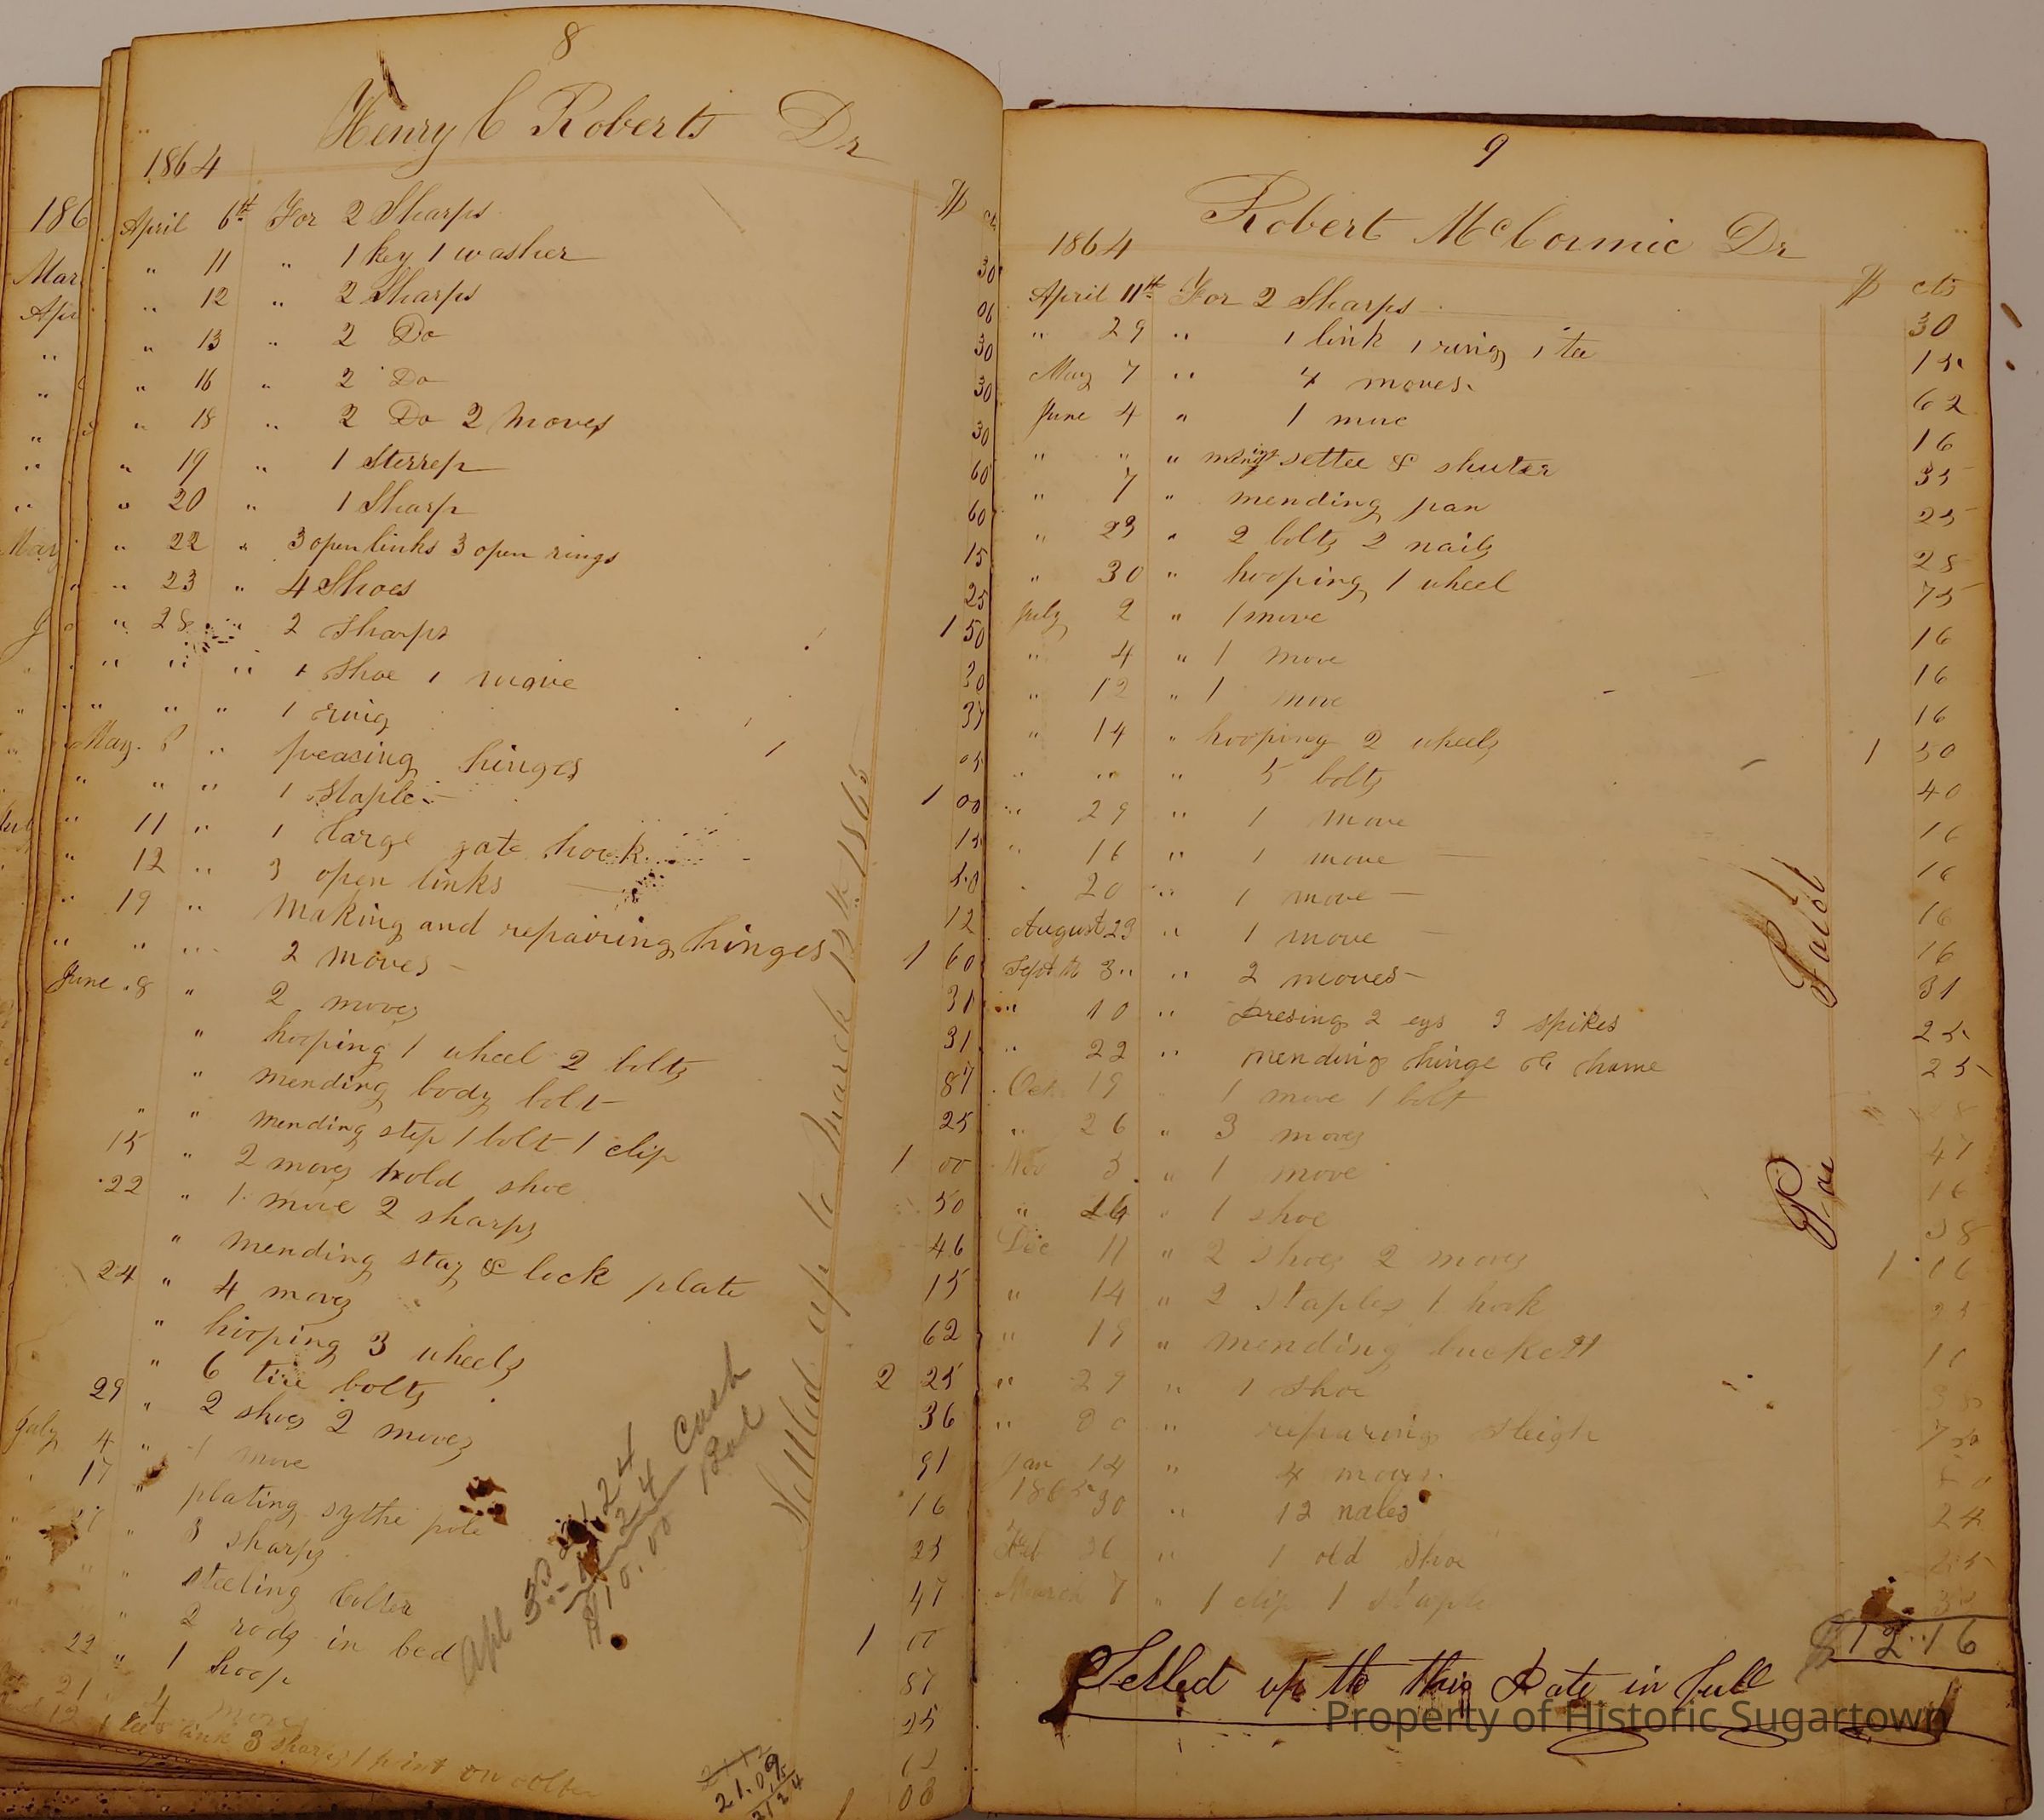 8
Henry C Roberts Dr
1864
$ cts
April 6th For 2 Sharps 30
" 11 " 1 key 1 washer 06
" 12 " 2 Sharps 30
" 13 " 2 Do 30
" 16 " 2 Do 30
" 18 " 2 Do 2 moves 60
" 19 " 1 Sterrep 60
" 20 " 1 Sharp 15
" 22 " 3 open links 3 open rings 25
" 23 " 4 Shoes 1 50
" 28 " 2 Sharps 30
" " " 1 Shoe 1 move 37
" " " 1 ring 05
May 8 " hinges 1 00
" " " 1 Staple 15
" 11 " 1 large gate hook 50
" 12 " 3 open links 12
" 19 " making and repairing hinges 1 60
" " " 2 moves 31
June 8 " 2 moves 31
" hooping 1 wheel 2 bolts 87
" mending body bolt 25
" " mending step 1 bolt 1 clip 1 00
15 " 2 moves old shoe 50
22 " 1 move 2 sharps 46
" mending stay & lock plate 15
24 " 4 moves 62
" hooping 3 wheels 2 25
" 6 tire bolts 36
29 " 2 shoes 2 moves 91
July 4 " 1 move 16
17 " plating sythe pole 25
" 3 sharps 47
" steeling Colter 1 00
" 2 rods in bed 87
22 " 1 hoop 25
21 4 moves 62
12 1 link 3 sharps 1 point on colter 1 08
Settled up to March 13th 1865
Apl 3d
24 Cash
$10.00 Bal
21.09
15
9
Robert McCormic Dr
1864
$ cts
April 11th For 2 Sharps 30
" 29 " 1 link 1 ring 1 tee 15
May 7 " 4 moves 62
June 4 " 1 move 16
" " " settee & shuter 35
" 7 " mending pan 25
" 23 " 2 bolts 2 nails 28
" 30 " hooping 1 wheel 75
July 2 " 1 move 16
" 4 " 1 move 16
" 12 " 1 move 16
" 14 " hooping 2 wheels 1 50
" " " 5 bolts 40
" 29 " 1 move 16
" 16 " 1 move 16
" 20 " 1 move 16
August 23 " 1 move 16
Sept 3 " 2 moves 31
" 10 " Dresing 2 eys 3 spikes 25
" 22 " mending hinge & hame 25
Oct 19 " 1 move 1 bolt
" 26 " 3 moves 47
Nov 3 " 1 move 16
" 14 " 1 shoe 38
Dec 11 " 2 shoes 2 moves 1 16
" 14 " 2 Staples 1 hook
" 19 " mending buckett
" 29 " 1 shoe 38
" 30 " repairing sleigh
Jan 14 " 4 moves
1865 30 " 12 nales 24
Feb " 1 old shoe 25
March 7 " 1 clip 1 staple
$12.16
Paid
Setled up to this Date in full
Property of Historic Sugartown